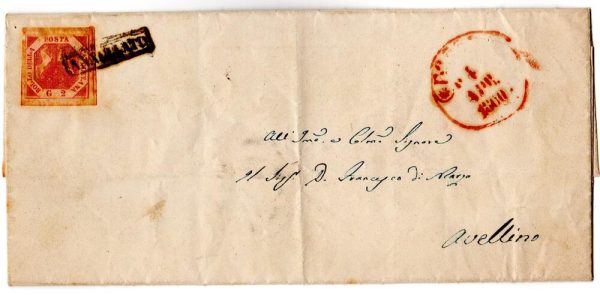 POSTA
BOLLO DELLA
NAP
G 2
ANNULLATO
4
APR.
1860
All' Ill.mo e Colmo Signore
Il Sig.r D. Francesco di
Avellino